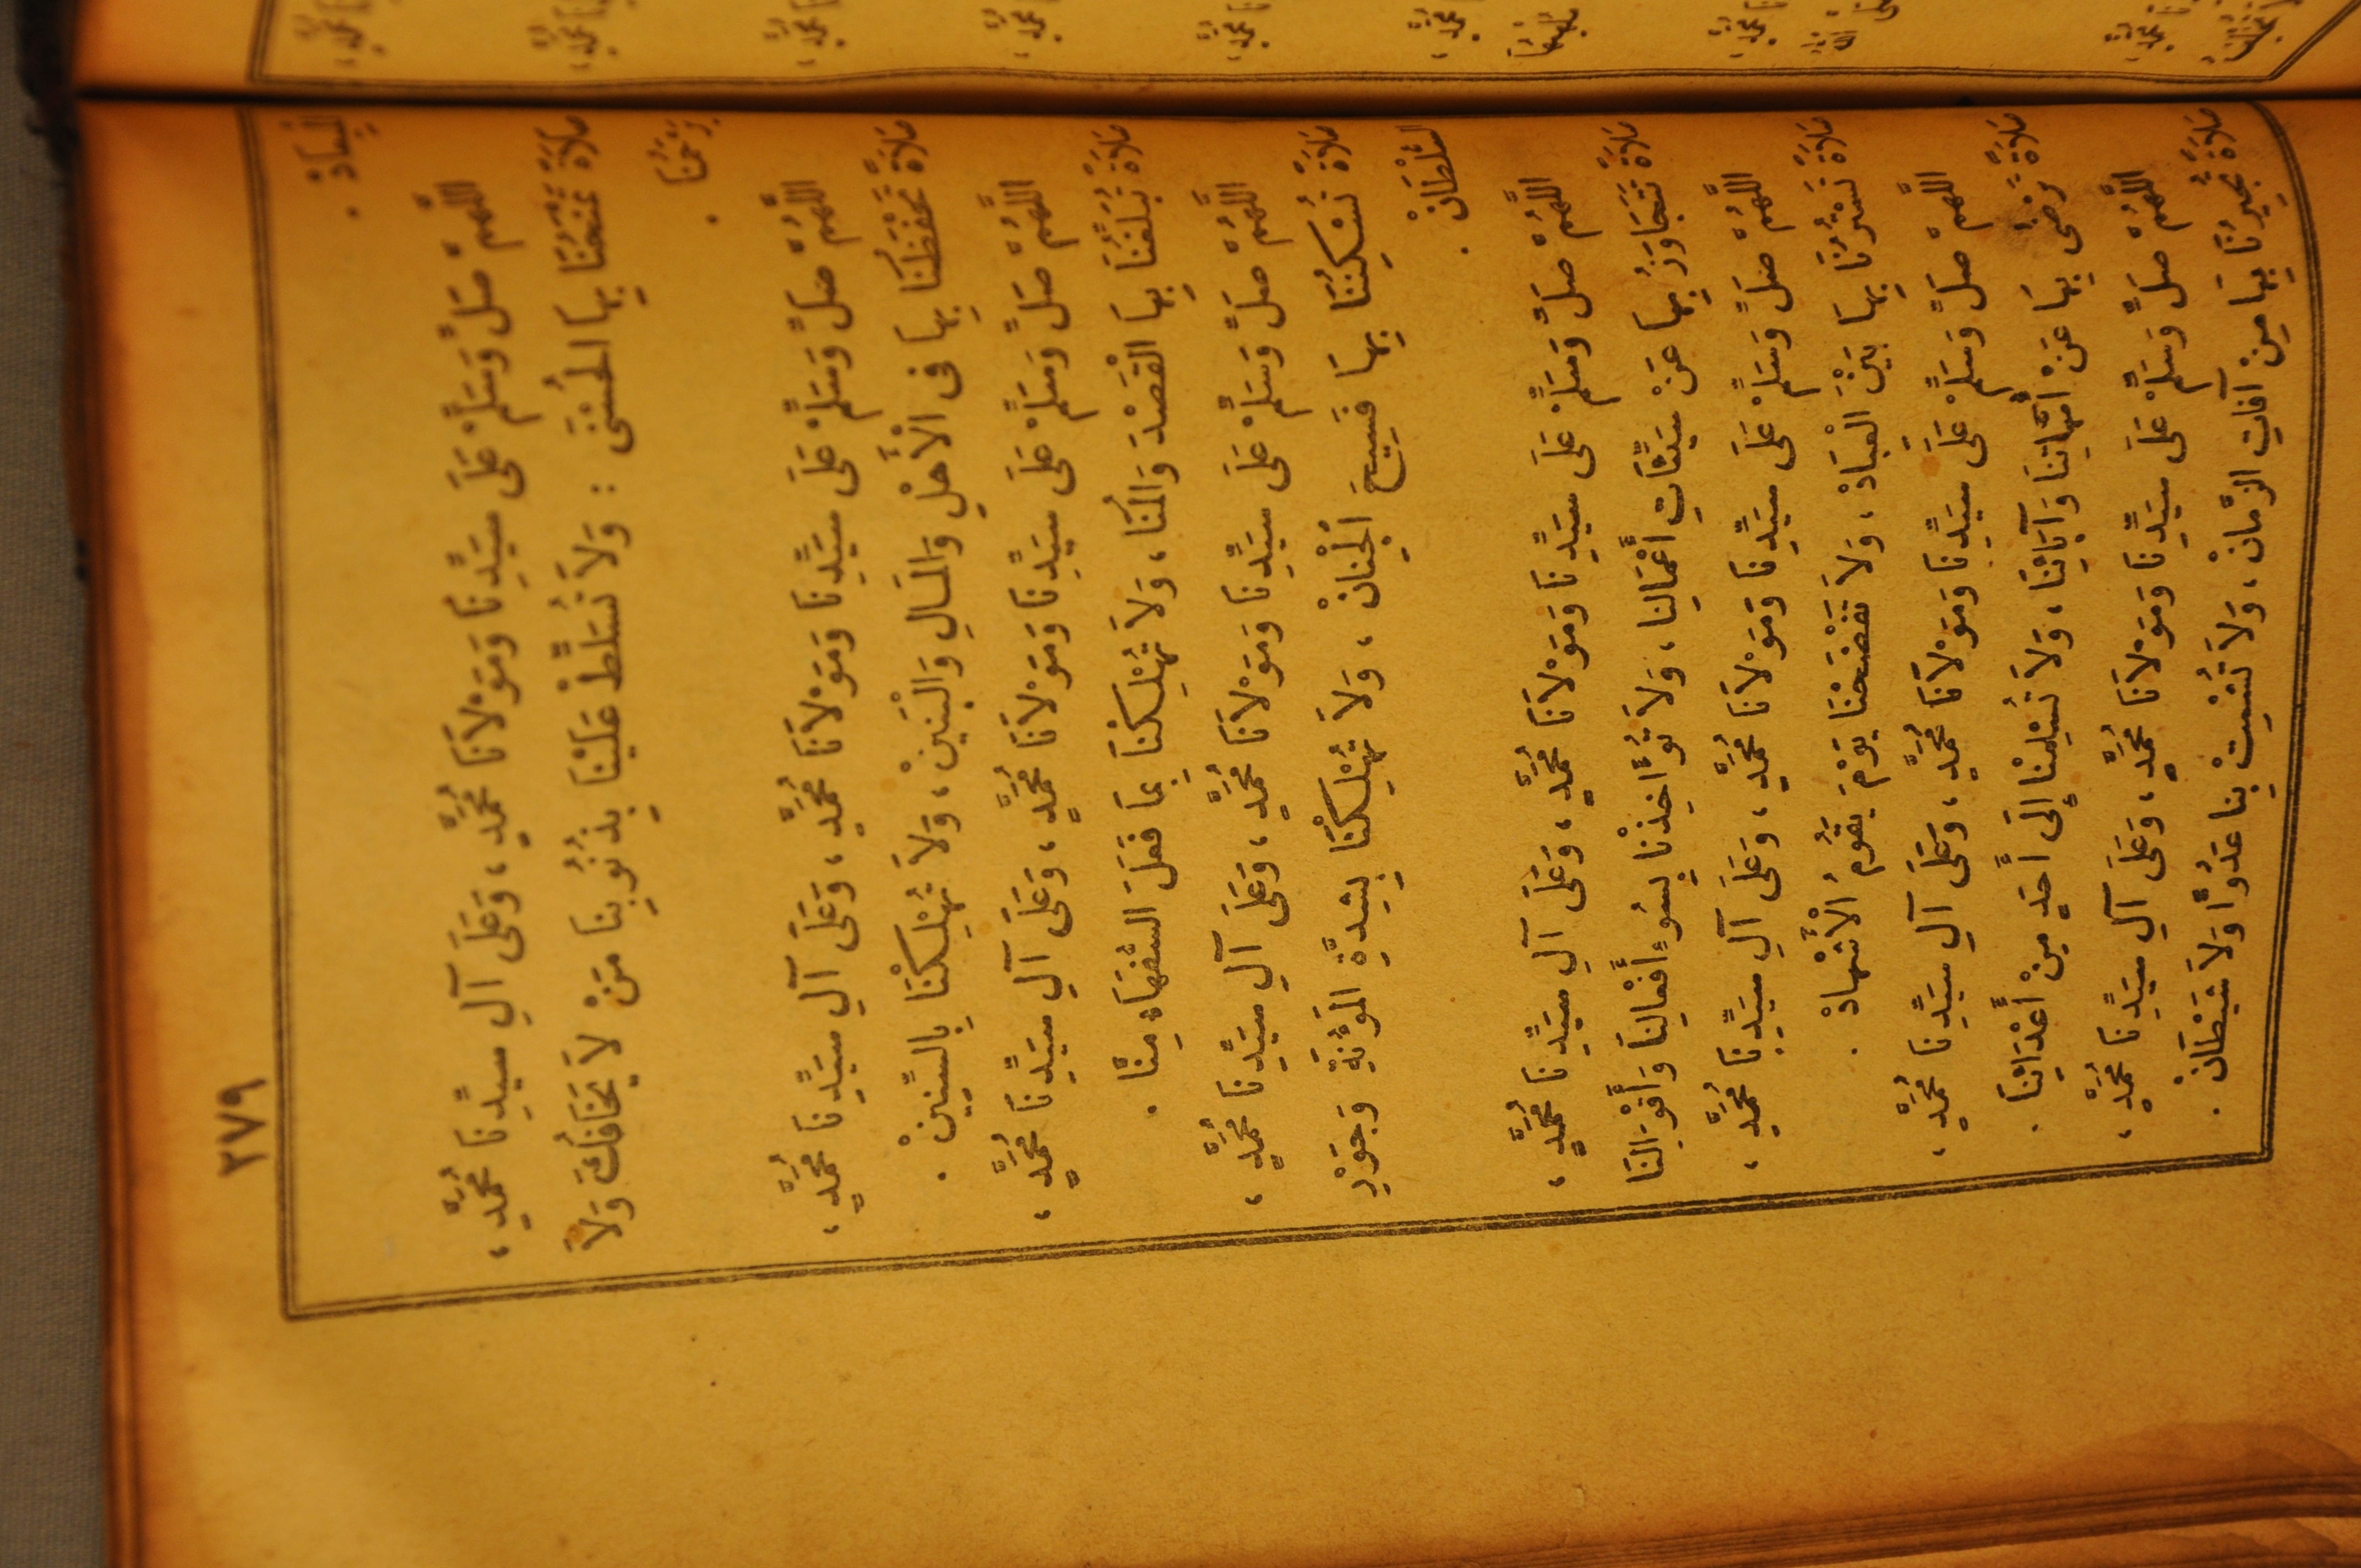 ٣٧٩
اللَّهُمَّ صَلِّ وَسَلِّمْ عَلَى سَيِّدِنَا وَمَوْلَانَا مُحَمَّدٍ، وَعَلَى آلِ سَيِّدِنَا مُحَمَّدٍ،
صَلَاةً تَمْنَحُنَا بِهَا الْحُسْنَى : وَلَا تُسَلِّطْ عَلَيْنَا بِذُنُوبِنَا مَنْ لَا يَخَافُكَ وَلَا
يَرْحَمُنَا .
اللَّهُمَّ صَلِّ وَسَلِّمْ عَلَى سَيِّدِنَا وَمَوْلَانَا مُحَمَّدٍ، وَعَلَى آلِ سَيِّدِنَا مُحَمَّدٍ،
صَلَاةً تَحْفَظُنَا بِهَا فِى الْأَهْلِ وَالْمَالِ وَالْبَنِينْ، وَلَا تُهْلِكْنَا بِالسِّنِينْ .
اللَّهُمَّ صَلِّ وَسَلِّمْ عَلَى سَيِّدِنَا وَمَوْلَانَا مُحَمَّدٍ، وَعَلَى آلِ سَيِّدِنَا مُحَمَّدٍ،
صَلَاةً تُبَلِّغُنَا بِهَا الْقَصْدَ وَالْمُنَا، وَلَا تُهْلِكْنَا بِمَا فَعَلَ السُّفَهَاءُ مِنَّا .
اللَّهُمَّ صَلِّ وَسَلِّمْ عَلَى سَيِّدِنَا وَمَوْلَانَا مُحَمَّدٍ، وَعَلَى آلِ سَيِّدِنَا مُحَمَّدٍ،
صَلَاةً تُسْكِنُنَا بِهَا فَسِيحَ الْجِنَانْ، وَلَا تُهْلِكْنَا بِشِدَّةِ الْمَؤُنَةِ وَجَوْرِ
السُّلْطَانْ .
اللَّهُمَّ صَلِّ وَسَلِّمْ عَلَى سَيِّدِنَا وَمَوْلَانَا مُحَمَّدٍ، وَعَلَى آلِ سَيِّدِنَا مُحَمَّدٍ،
صَلَاةً تَتَجَاوَزُ بِهَا عَنْ سَيِّئَاتِ أَعْمَالِنَا، وَلَا تُؤَاخِذْنَا بِسُوءِ أَفْعَالِنَا وَأَقْوَالِنَا
اللَّهُمَّ صَلِّ وَسَلِّمْ عَلَى سَيِّدِنَا وَمَوْلَانَا مُحَمَّدٍ، وَعَلَى آلِ سَيِّدِنَا مُحَمَّدٍ،
صَلَاةً تَسْتُرُنَا بِهَا بَيْنَ الْعِبَادْ، وَلَا تَفْضَحْنَا يَوْمَ يَقُومُ الْأَشْهَادْ .
اللَّهُمَّ صَلِّ وَسَلِّمْ عَلَى سَيِّدِنَا وَمَوْلَانَا مُحَمَّدٍ، وَعَلَى آلِ سَيِّدِنَا مُحَمَّدٍ،
صَلَاةً تَرْضَى بِهَا عَنْ أُمَّهَاتِنَا وَآبَائِنَا، وَلَا تُسْلِمْنَا إِلَى أَحَدٍ مِنْ أَعْدَائِنَا .
اللَّهُمَّ صَلِّ وَسَلِّمْ عَلَى سَيِّدِنَا وَمَوْلَانَا مُحَمَّدٍ، وَعَلَى آلِ سَيِّدِنَا مُحَمَّدٍ،
صَلَاةً تُجِيرُنَا بِهَا مِنْ آفَاتِ الزَّمَانْ، وَلَا تُشْمِتْ بِنَا عَدُوًّا وَلَا شَيْطَانْ .